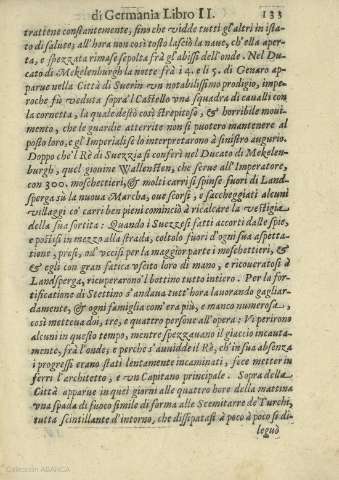 di Germania Libro II. 133
trattiene constantemente, fino che vidde tutti gl'altri in ista-
to di salute, all'hora non così tosto lasciò la naue, ch'ella aper-
ta, e spezzata rimase sepolta frà gl'abissi dell'onde. Nel Du-
cato di Mekelenburgh la notte frà i 4. e li 5. di Genaro ap-
parue nella Città di Suerin vn notabilissimo prodigio, impe-
roche fù veduta sopra'l Castello vna squadra di caualli con
la cornetta, la quale destò così strepitoso, & horribile moui-
mento, che le guardie atterrite non si puotero mantenere al
posto loro, e gl'Imperiali se lo interpretarono à sinistro augurio.
Doppo che'l Rè di Suezzia si conferì nel Ducato di Mekelen-
burgh, quel giouine Wallenstten, che serue all'Imperatore,
con 300. moschettieri, & molti carri si spinse fuori di Land-
sperga sù la nuoua Marca, oue scorsi, e saccheggiati alcuni
villaggi co' carri ben pieni cominciò à ricalcare la vestigia
della sua sortita: Quando i Suezzesi fatti accorti dalle spie,
e postisi in mezzo alla strada, coltolo fuori d'ogni sua aspetta-
tione, presi, od' vccisi per la maggior parte i moschettieri, &
& egli con gran fatica vscito loro di mano, e ricoueratosi à
Landsperga, ricuperarono'l bottino tutto intiero. Per la for-
tificatione di Stettino s'andaua tutt'hora lauorando gagliar-
damente, & ogni famiglia com'era più, e manco numerosa,
così metteua doi, tre, e quattro persone all'opera: Vi perirono
alcuni in questo tempo, mentre spezzauano il giaccio incauta-
mente, frà l'onde; e perche s'auuidde il Rè, ch'in sua absenza
i progressi erano stati lentamente incaminati, fece metter in
ferri l'architetto, e vn Capitano principale. Sopra della
Città apparue in quei giorni alle quattro hore della mattina
vna spada di fuoco simile di forma alle Scemitarre de Turchi,
tutta scintillante d'intorno, che dissipatasi à poco à poco si di-
leguò
Colección ABANCA